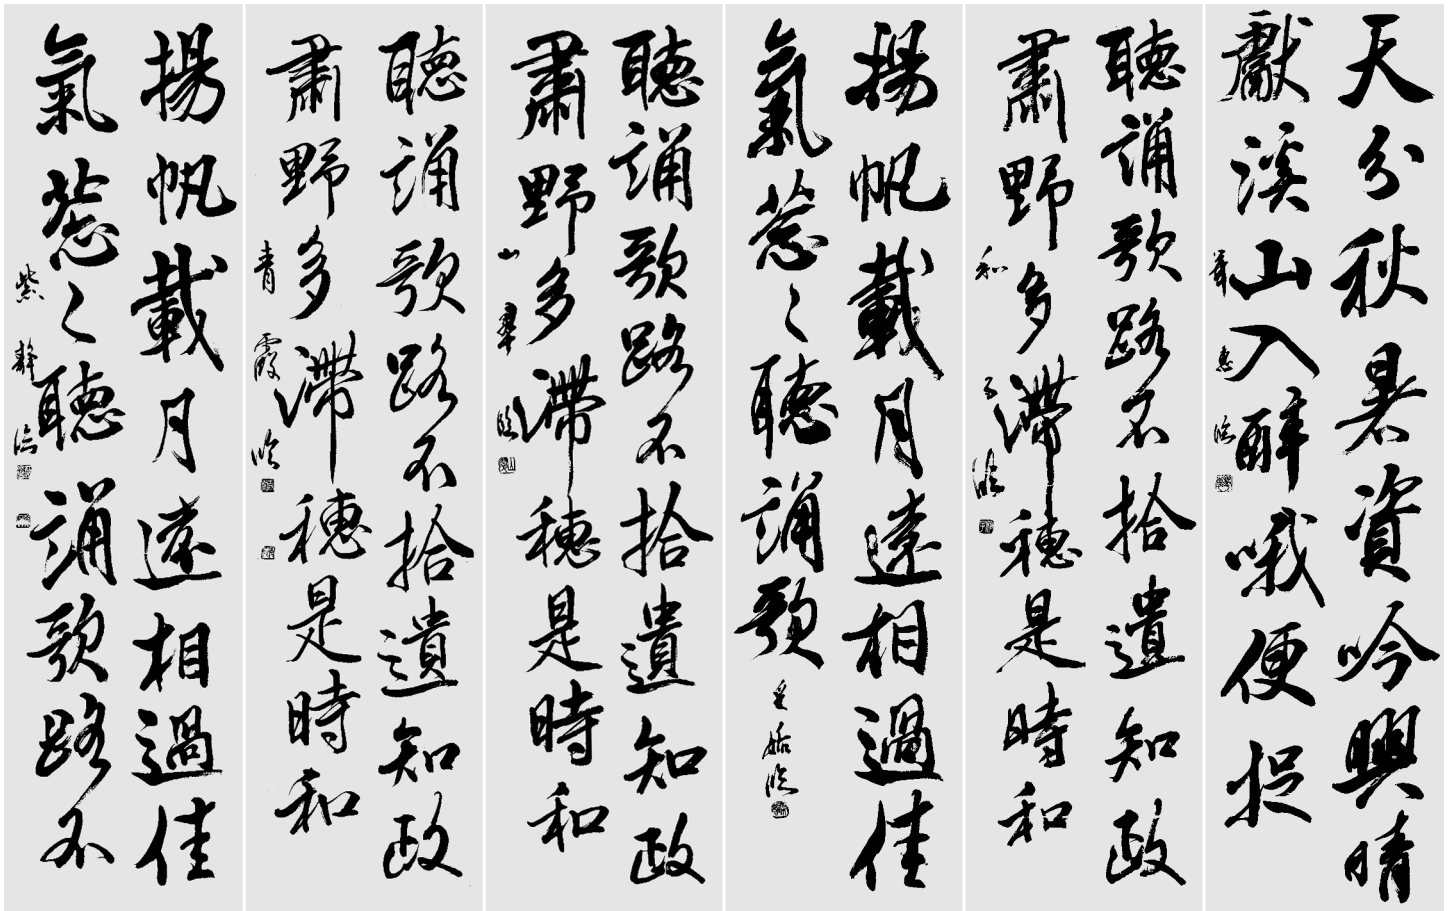 天分秋暑資吟興晴
獻溪山入醉哦便捉
聽誦歌路不拾遺知政
肅野多滯穗是時和
和子臨
揚帆載月遠相過佳
氣蔥々聽誦歌
聽誦歌路不拾遺知政
肅野多滯穗是時和
山翠臨
聽誦歌路不拾遺知政
肅野多滯穗是時和
青霞臨
揚帆載月遠相過佳
氣蔥々聽誦歌路不
紫靜臨